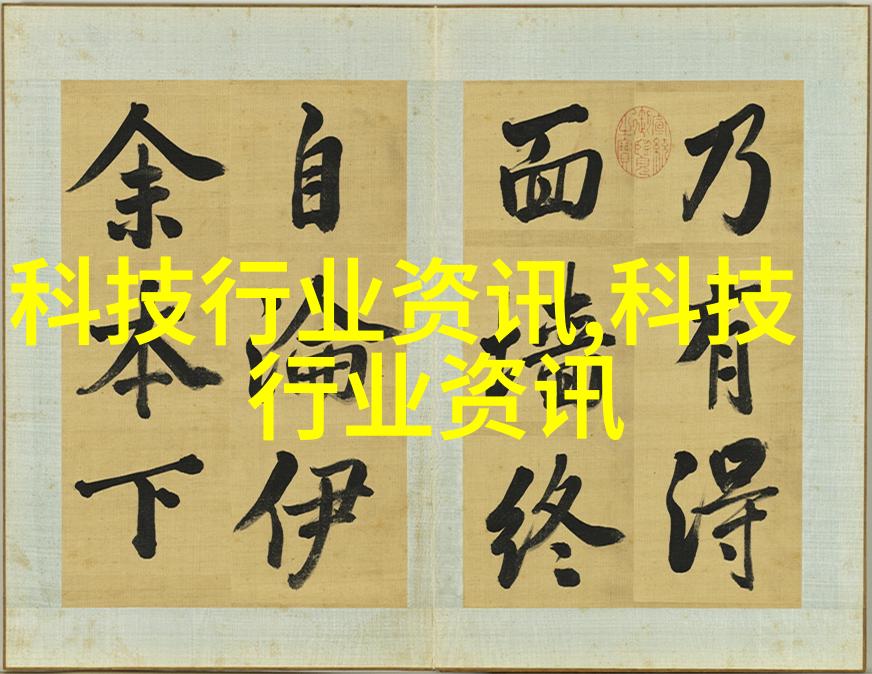 科技行业资讯,科技
行业资讯
乃有得
面墻終
自淪伊
余本下